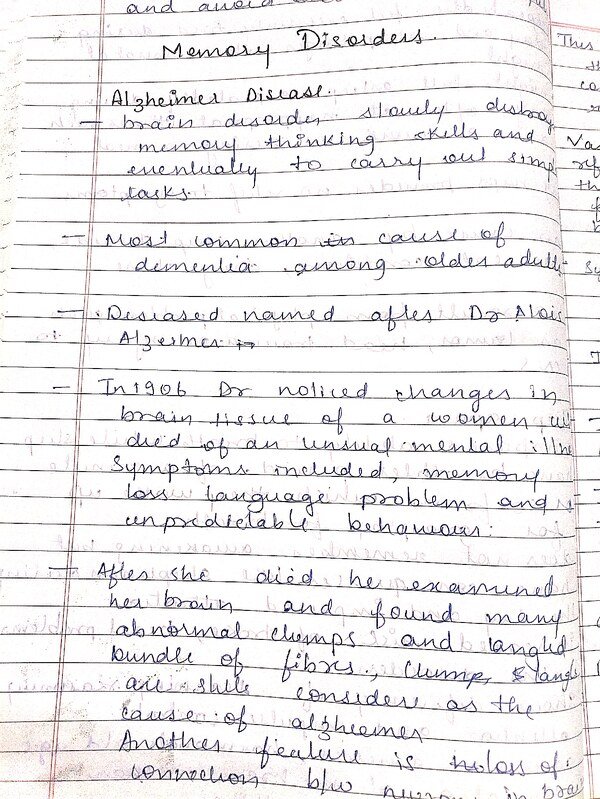 and avoid
Memory Disorders.
Alzheimer Disease.
– brain disorder slowly distroy
memory thinking skills and
eventually to carry out simp
tasks.
– Most common cause of
dementia among older adult
– Diseased named after Dr Alois
Alzermer
– In 1906 Dr noticed changes in
brain tissue of a women
died of an unusual mental illne
Symptoms included, memory
loss language problem and
unpredictable behaviour.
– After she died he examined
her brain and found many
abnormal clumps and tangled
bundle of fibres, clump, & tangl
are still consider as the
cause of alzheimer
Another feature is loss of
connection b/w in brai
This
Va
ref
th
Sy